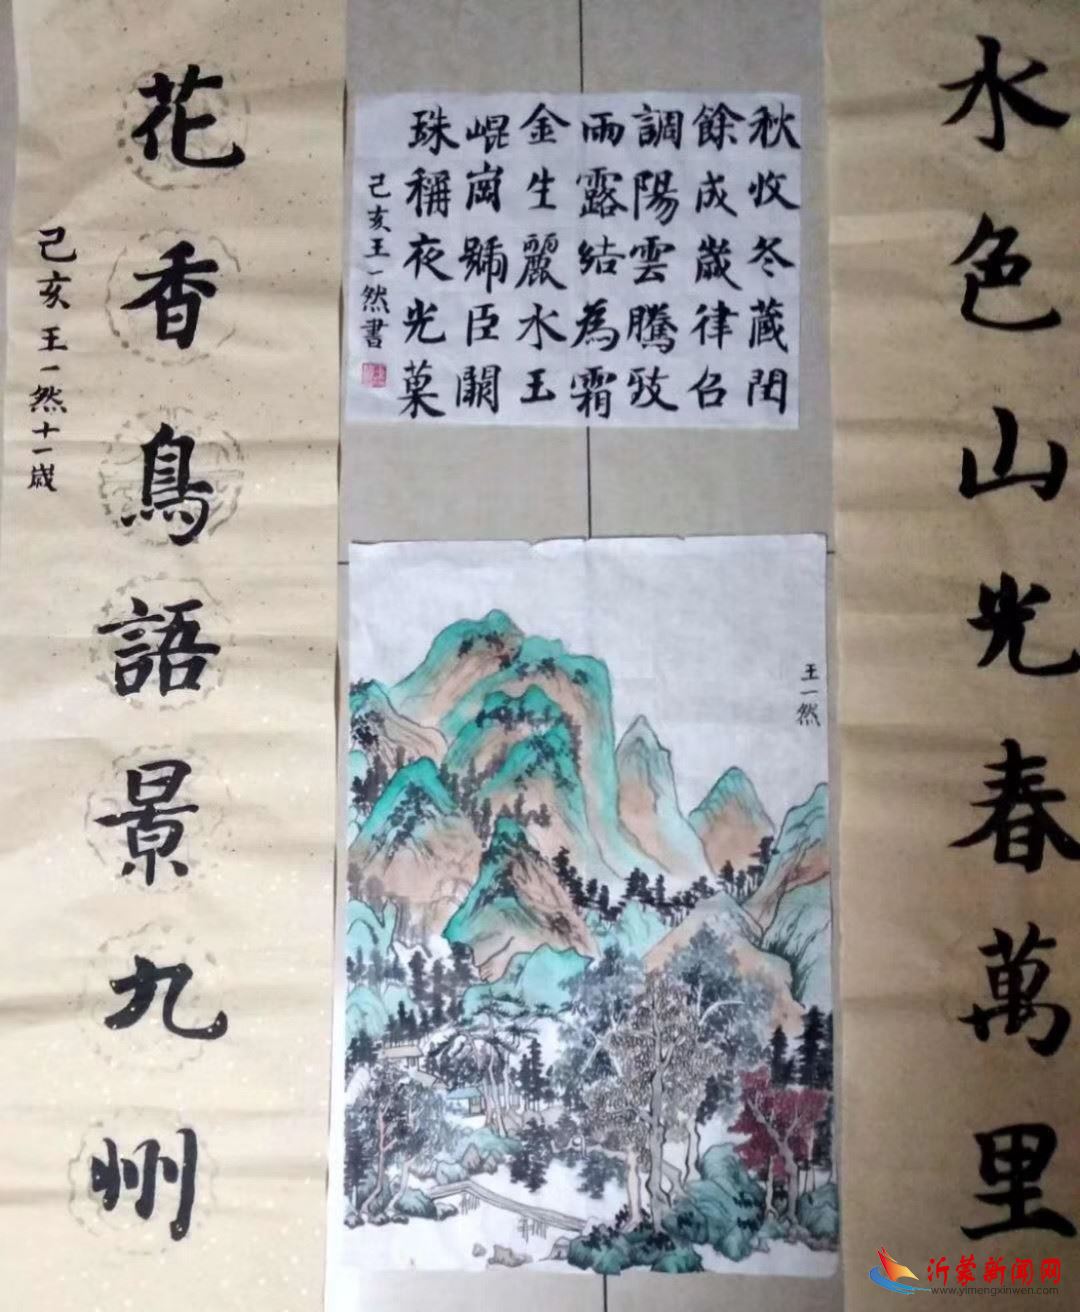 水色山光春萬里
花香鳥語景九州
己亥王一然十一歲
秋收冬藏閏
餘成歲律召
調陽雲騰致
雨露結為霜
金生麗水玉
崐崗號臣闕
珠稱夜光菓
己亥王一然書
王一然
沂蒙新闻网
www.yimengxinwen.com